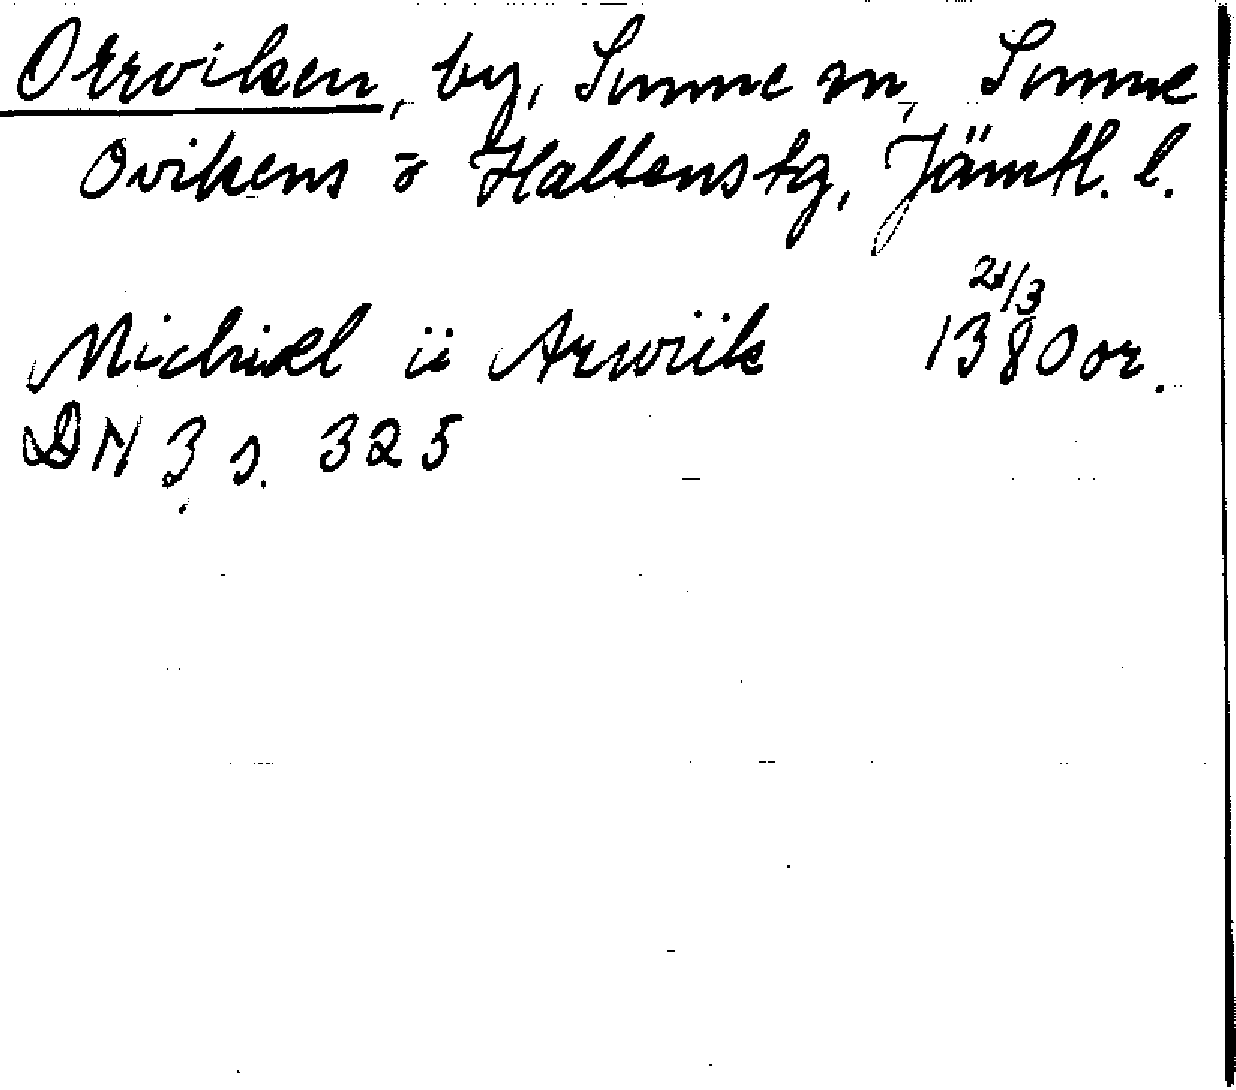 Orrviken, by, Sunne sn, Sunne
Ovikens o Hallens tg, Jämtl. l.
21/3
Michiæl ii Arwiik 1380 or.
DN 3 s. 325